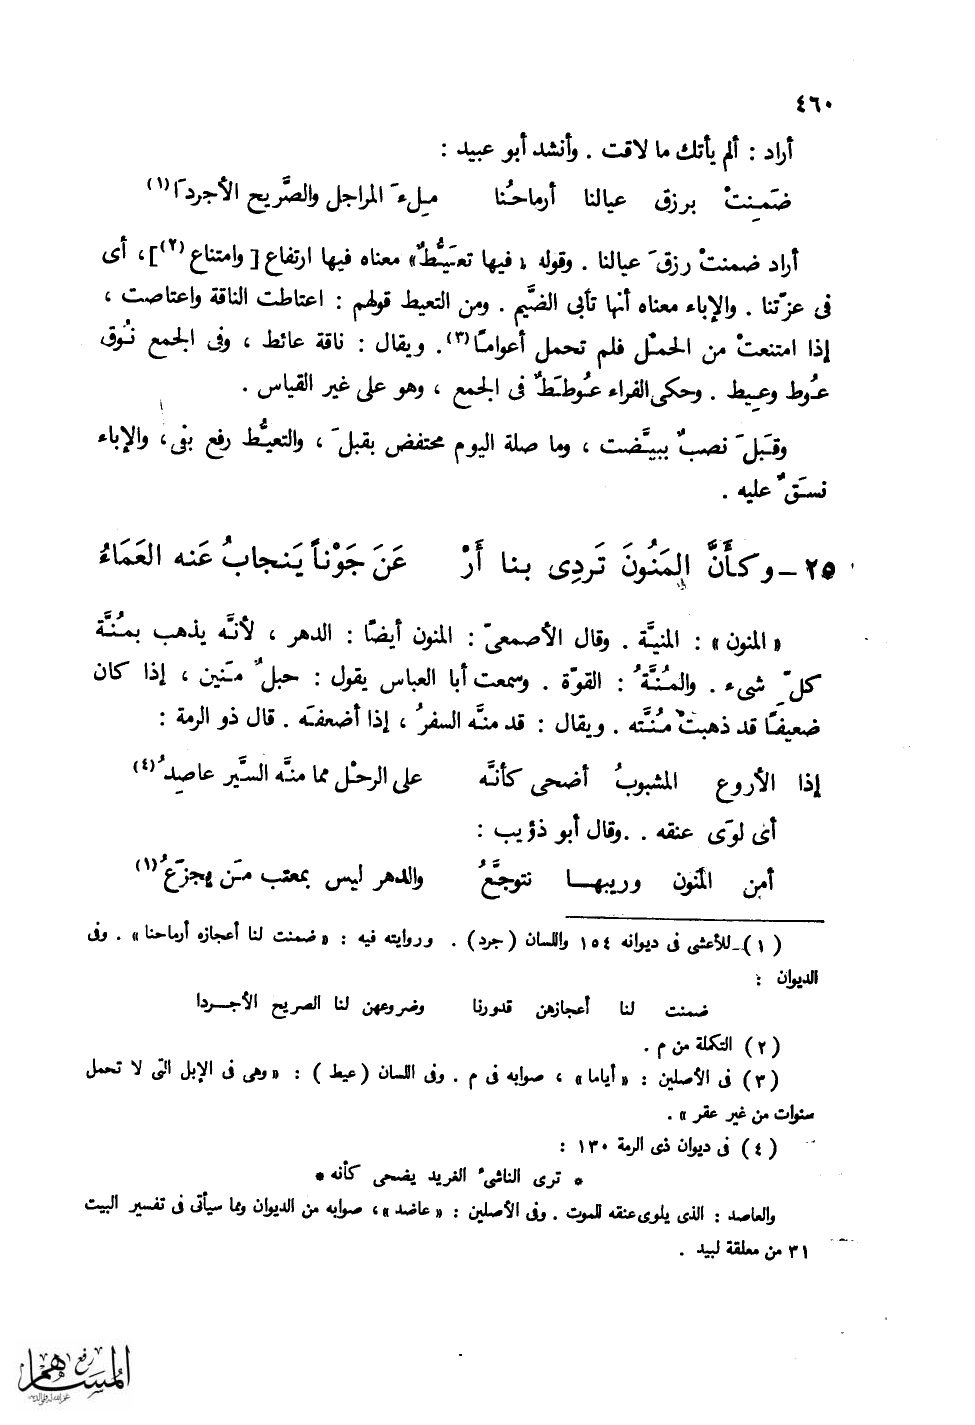 ٤٦٠
أراد : ألم يأتك ما لاقت . وأنشد أبو عبيد :
ضَمِنتْ برزق عيالنا أرماحُنا مِلءَ المراجل والصَّريح الأجردَا(١)
أراد ضمنتْ رزقَ عيالنا . وقوله «فيها تعيُّطٌ» معناه فيها ارتفاع [ وامتناع(٢)]، أى
فى عزّتنا . والإباء معناه أنها تأبى الضَّيم . ومن التعيط قولهم : اعتاطت الناقة واعتاصت ،
إذا امتنعتْ من الحمْل فلم تحمل أعوامًا(٣). ويقال : ناقة عائط ، وفى الجمع نُوق
عُوط وعِيط . وحكى الفراء عُوطَطٌ فى الجمع ، وهو على غير القياس .
وقَبلَ نصبٌ ببيَّضت ، وما صلة اليوم مختفض بقبلَ ، والتعيُّط رفع بفى ، والإباء
نسَقٌ عليه .
٢٥ – وكأنَّ المَنُونَ تَردِى بنا أَرْ عَنَ جَوْناً يَنجابُ عَنه العَمَاءُ
«المنون» : المنيَّة . وقال الأصمعىّ : المنون أيضًا : الدهر ، لأنَّه يذهب بمُنَّة
كلِّ شىء . والمُنَّةُ : القوّة . وسمعت أبا العباس يقول : حبلٌ مَنين ، إذا كان
ضعيفًا قد ذهبتْ مُنَّته . ويقال : قد منَّه السفرُ ، إذا أضعفَه . قال ذو الرمة :
إذا الأروع المشبوبُ أضحى كأنَّه على الرحْل مما منَّه السَّير عاصِدُ(٤)
أى لوَى عنقه . .وقال أبو ذؤيب :
أمن المَنون وريبهـا تتوجَّعُ والدهر ليس بمعتب مَن يجزَعُ(١)
(١) للأعشى فى ديوانه ١٥٤ واللسان (جرد) . وروايته فيه : «ضمنت لنا أعجازه أرماحنا» . وفى
الديوان :
ضمنت لنا أعجازهن قدورنا وضروعهن لنا الصريح الأجـردا
(٢) التكملة من م .
(٣) فى الأصلين : «أياما» ، صوابه فى م . وفى اللسان (عيط) : «وهى فى الإبل التى لا تحمل
سنوات من غير عقر» .
(٤) فى ديوان ذى الرمة ١٣٠ :
* ترى الناشىء الغريد يضحى كأنه *
والعاصد : الذى يلوى عنقه للموت . وفى الأصلين : «عاضد»، صوابه من الديوان ومما سيأتى فى تفسير البيت
٣١ من معلقة لبيد .
رفع
المساهم